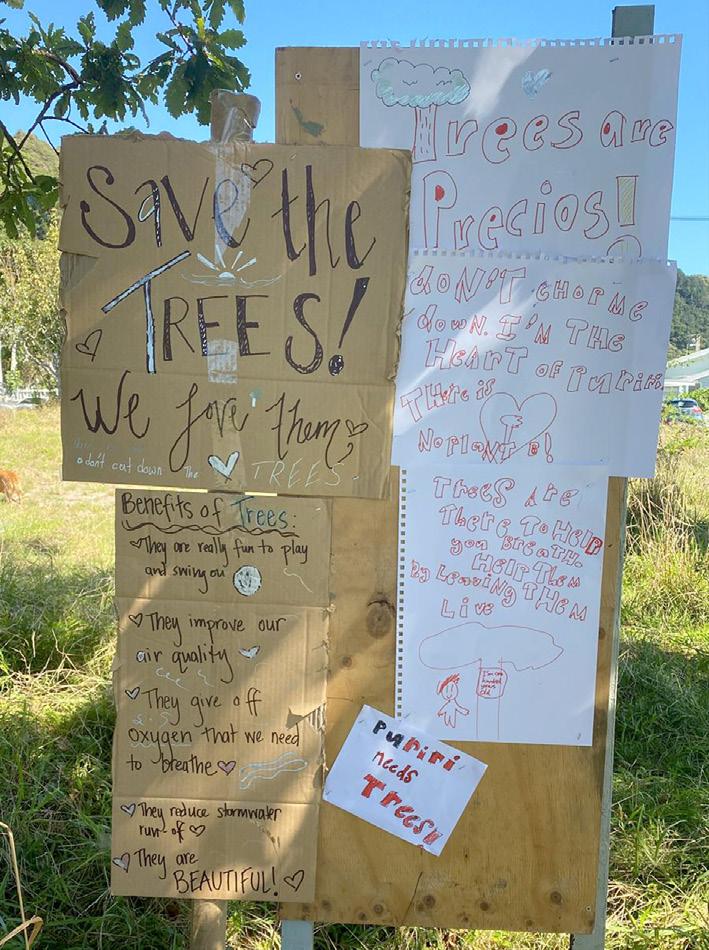 Save the
TREES!
We love them
don't cut down the TREES.
Benefits of Trees:
They are really fun to play
and swing on
They improve our
air quality
They give off
oxygen that we need
to breathe
They reduce stormwater
run-off
They are
BEAUTIFUL!
Trees are
Precios!
DON'T CHOP ME
down. I'M THE
HEART OF PURIRI
THere is
NO PLANT B!
Trees Are
There, To HELP
you BreATH.
HELP THEM
By LeAving THEM
Live
I'm one
hundred
years
old
PURIRI
needs
Trees!